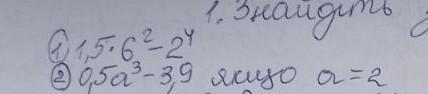 1. Знайдіть
① 1,5·6²-2⁴
② 0,5a³-3,9 якщо a=2